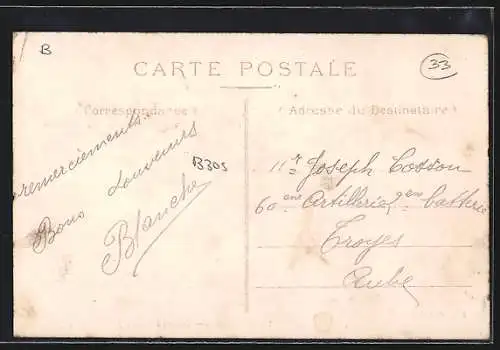 B
33
CARTE POSTALE
Correspondance
Adresse du Destinataire
remerciements.
Bons Souvenirs
Blanche
B305
Mr Joseph Cosson
60ème Artillerie, 9ème batterie
Troyes
Aube